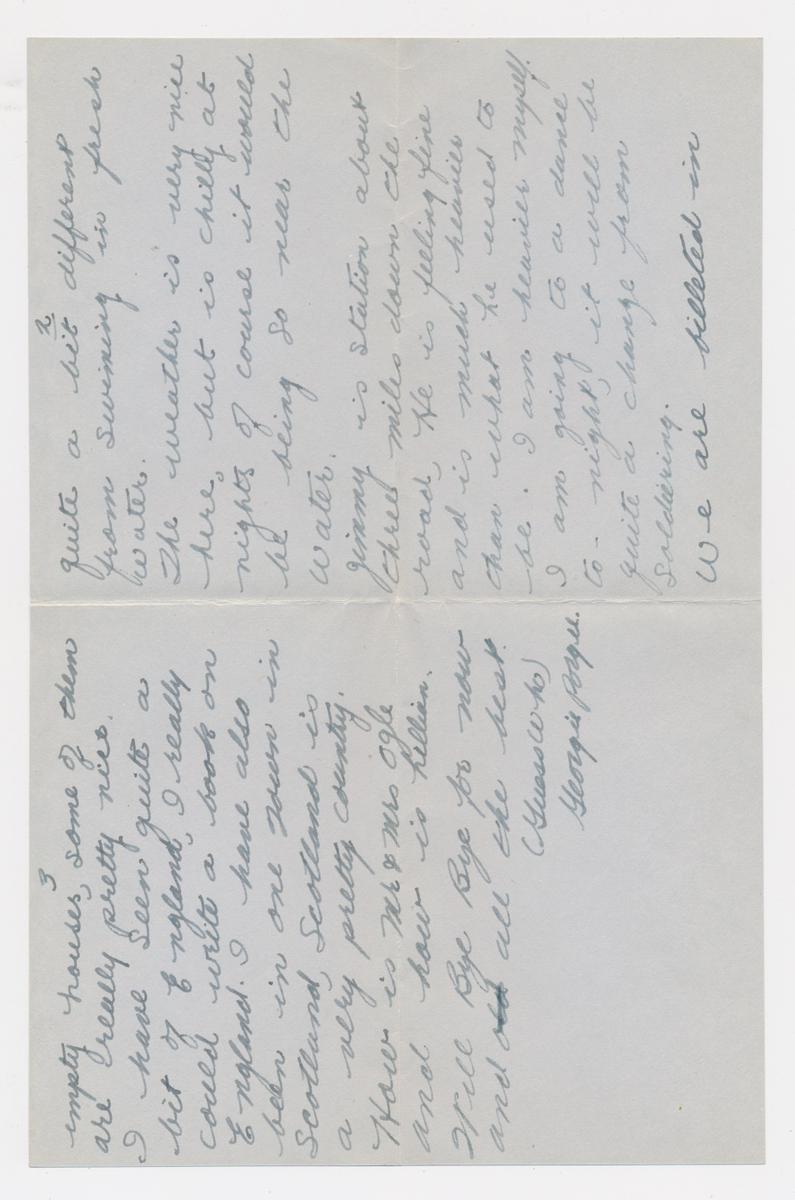 2
quite a bit different
from swiming in fresh
water.
The weather is very nice
here, but is chilly at
nights of course it would
be being so near the
water.
Jimmy is station about
three miles down the
road, He is feeling fine
and is much heavier
than what he used to
be. I am heavier myself.
I am going to a dance
to-night, it will be
quite a change from
soldiering.
We are billeted in
3
empty houses, some of them
are really pretty nice.
I have seen quite a
bit of England, I really
could write a book on
England. I have also
been in one town in
Scotland, Scotland is
a very pretty country.
How is Mr & Mrs Ogle
and how is Lillian.
Well Bye Bye for now
and all the best.
(Guess Who)
Georgie Porgie.